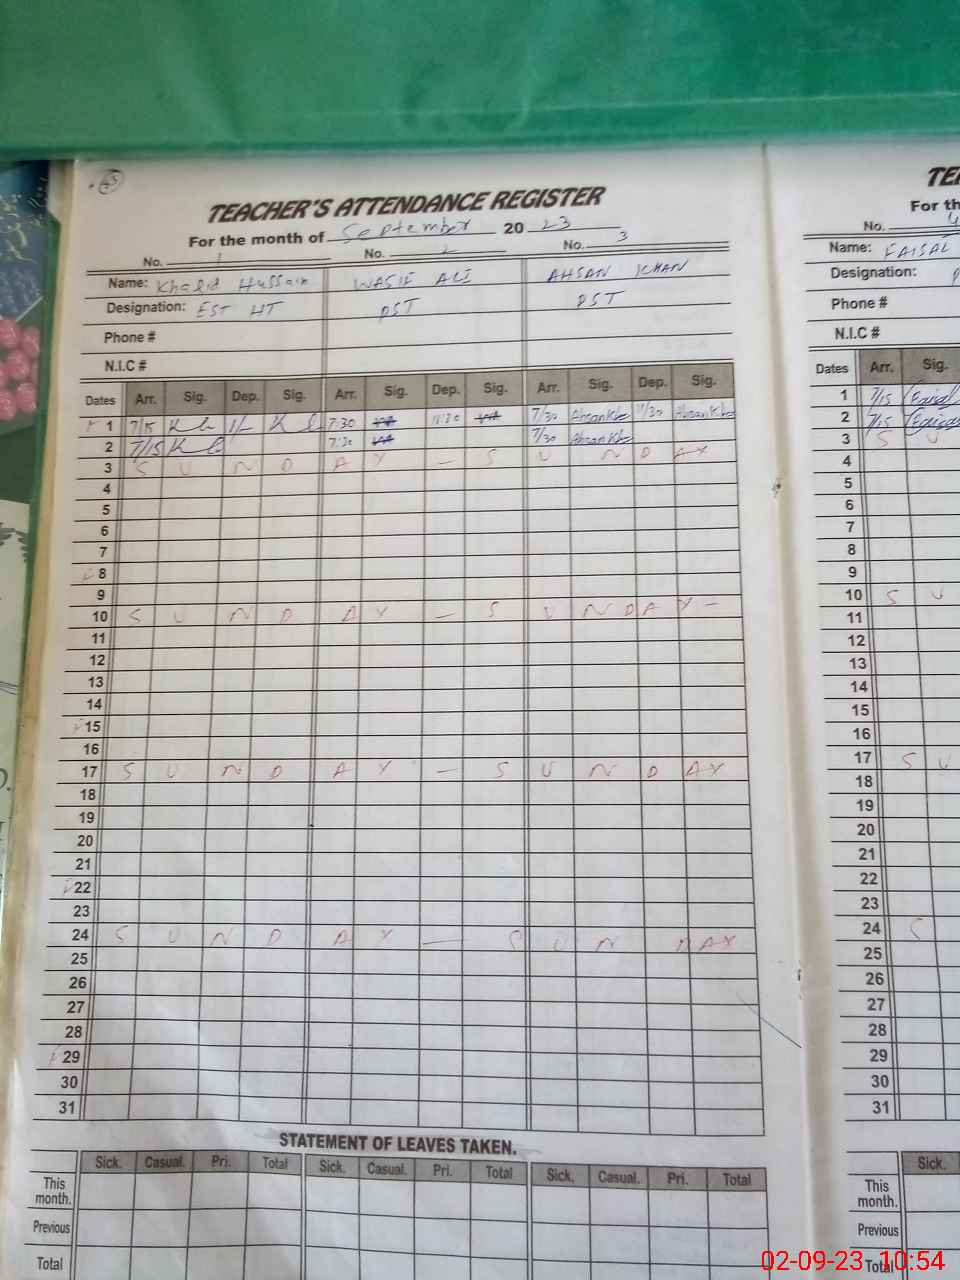 TEACHER'S ATTENDANCE REGISTER
For the month of September 2023
No. 1 No. 2 No. 3
Name: Khalid Hussain WASIF ALI AHSAN KHAN
Designation: EST HT PST PST
Phone #
N.I.C #
Dates Arr. Sig. Dep. Sig. Arr. Sig. Dep. Sig. Arr. Sig. Dep. Sig.
1 7/15 7:30 11:30 7/30 Ahsan Kha 11/30 Ahsan Kha
2 7/15 7:30 7/30 Ahsan Kha
3 S U N D A Y — S U N D A Y
4
5
6
7
8
9
10 S U N D A Y — S U N D A Y —
11
12
13
14
15
16
17 S U N D A Y — S U N D A Y
18
19
20
21
22
23
24 S U N D A Y — S U N D A Y
25
26
27
28
29
30
31
STATEMENT OF LEAVES TAKEN.
Sick. Casual. Pri. Total Sick. Casual. Pri. Total Sick. Casual. Pri. Total
This
month.
Previous
Total
TE
For th
No. 4
Name: FAISAL
Designation: P
Phone #
N.I.C #
Dates Arr. Sig.
1 7/15
2 7/15
3 S U
4
5
6
7
8
9
10 S U
11
12
13
14
15
16
17 S U
18
19
20
21
22
23
24 S
25
26
27
28
29
30
31
Sick.
This
month.
Previous
Total
02-09-23 10:54